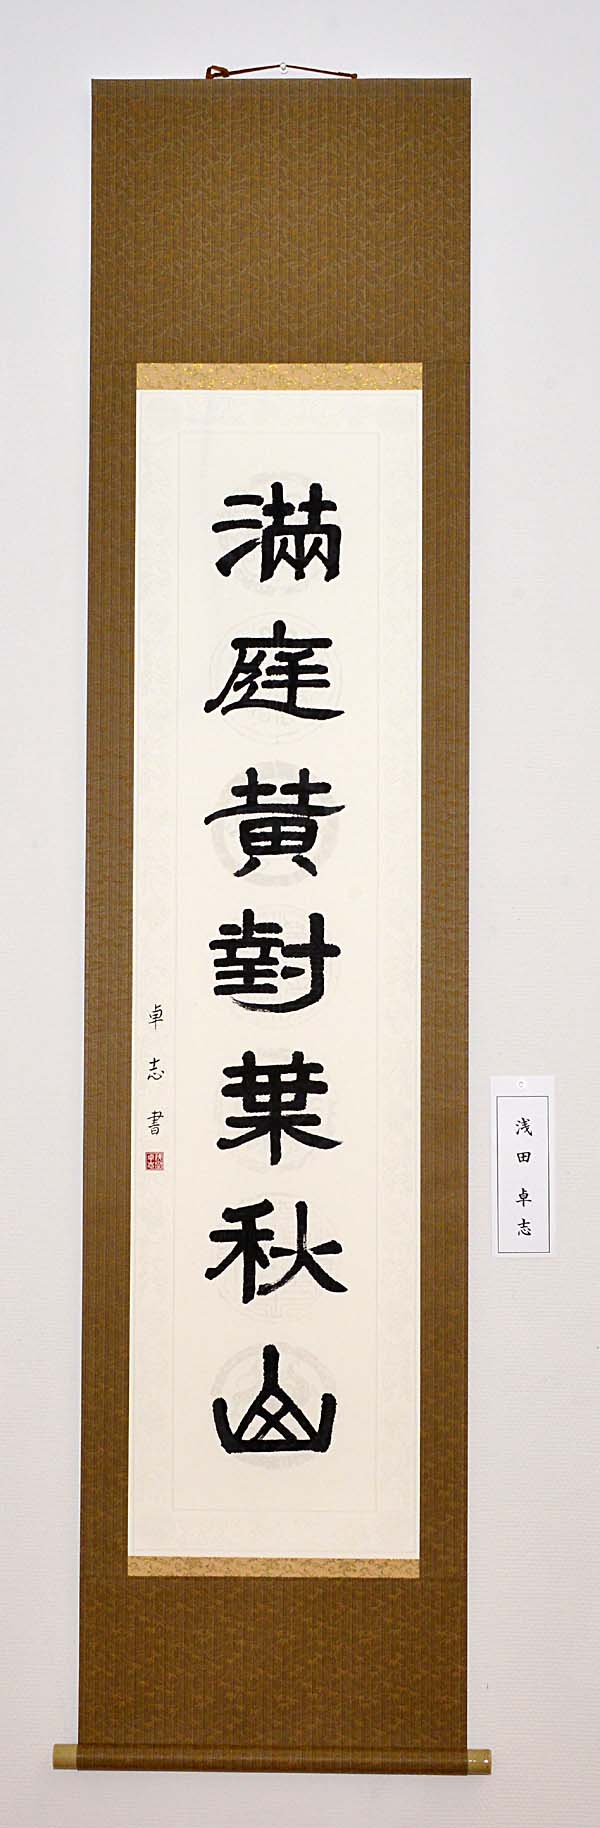 滿庭黄對葉秋山
卓志書
浅田卓志